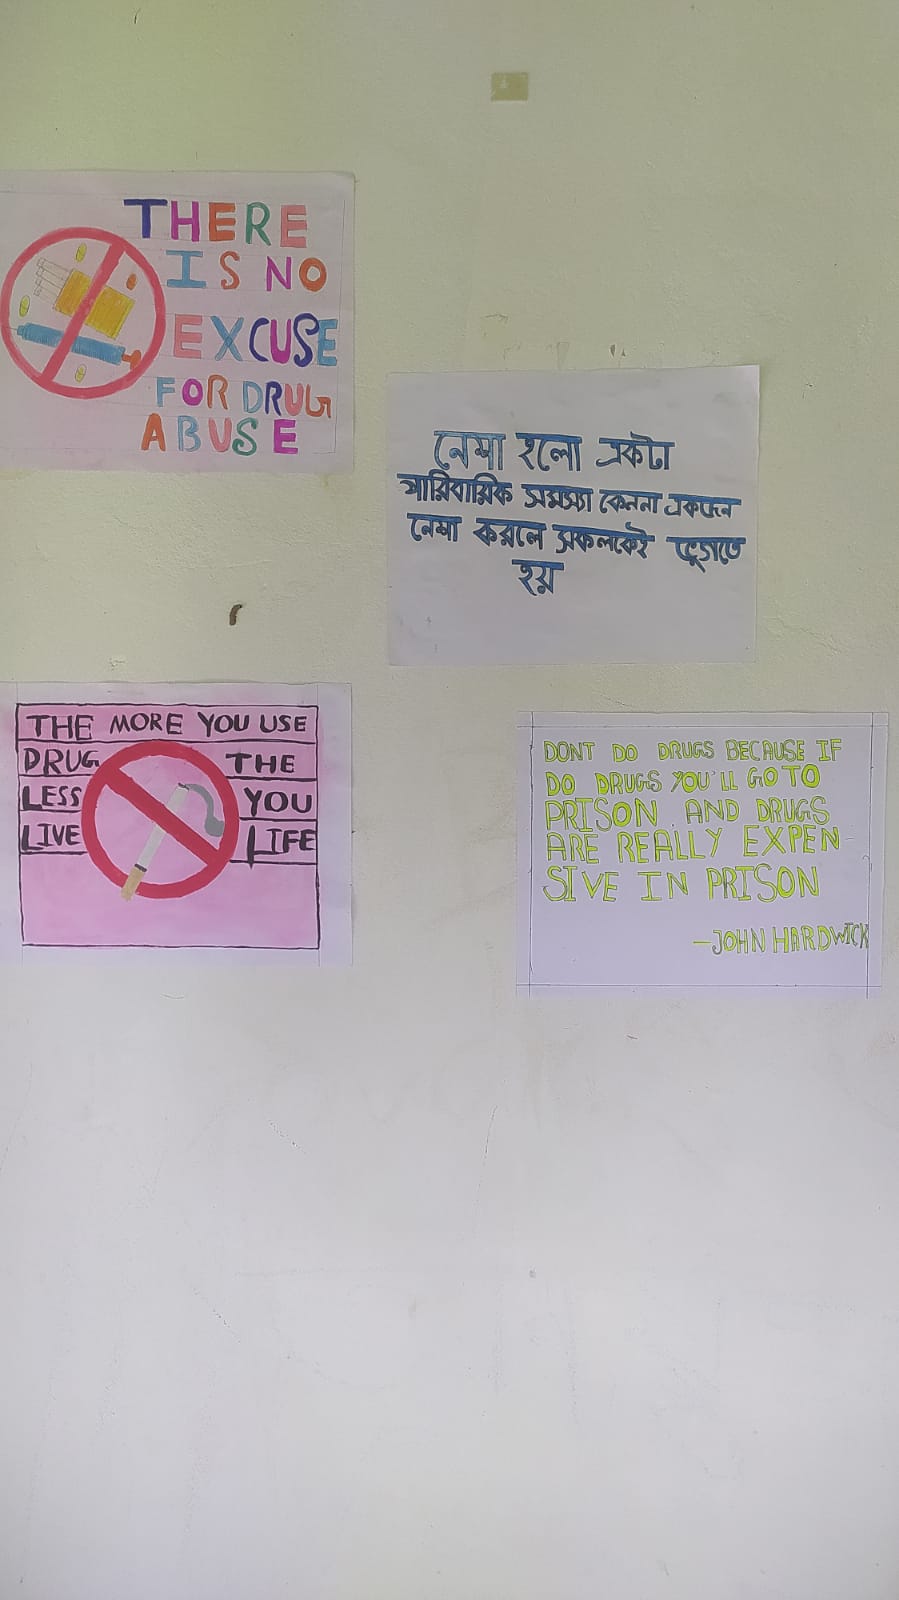 THERE
IS NO
EXCUSE
FOR DRUG
ABUSE
নেশা হলো একটা
পারিবারিক সমস্যা কেননা একজন
নেশা করলে সকলকেই ভুগতে
হয়
THE MORE YOU USE
DRUG THE
LESS YOU
LIVE LIFE
DONT DO DRUGS BECAUSE IF
DO DRUGS YOU'LL GO TO
PRISON AND DRUGS
ARE REALLY EXPEN-
SIVE IN PRISON
—JOHN HARDWICK